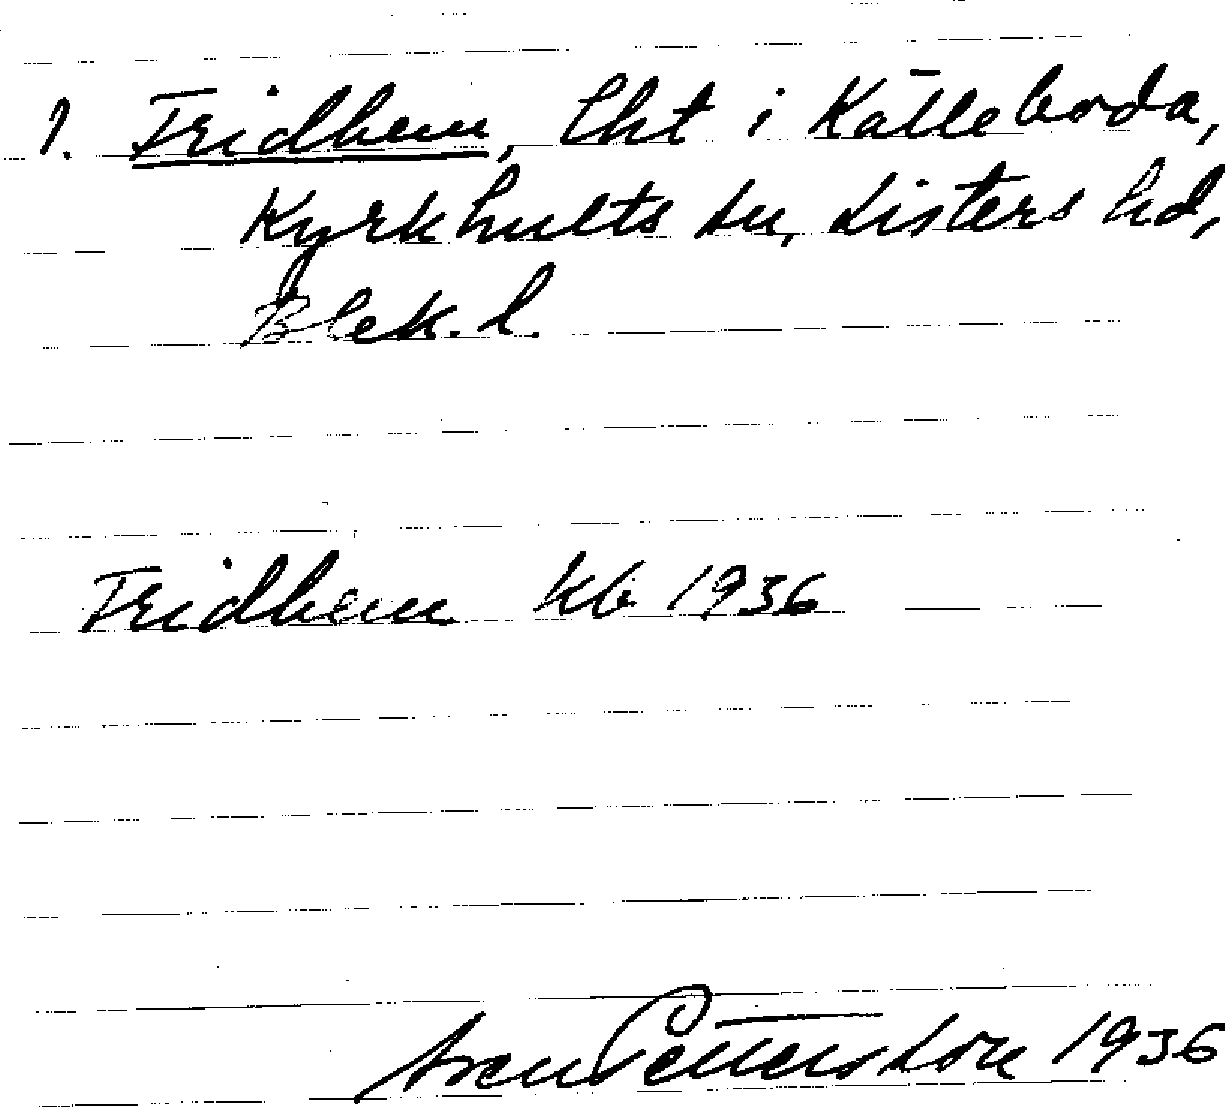 1. Fridhem, lht i Källeboda,
Kyrkhults sn, Listers hd,
Blek. l.
Fridhem kb 1936
Sven Pettersson 1936